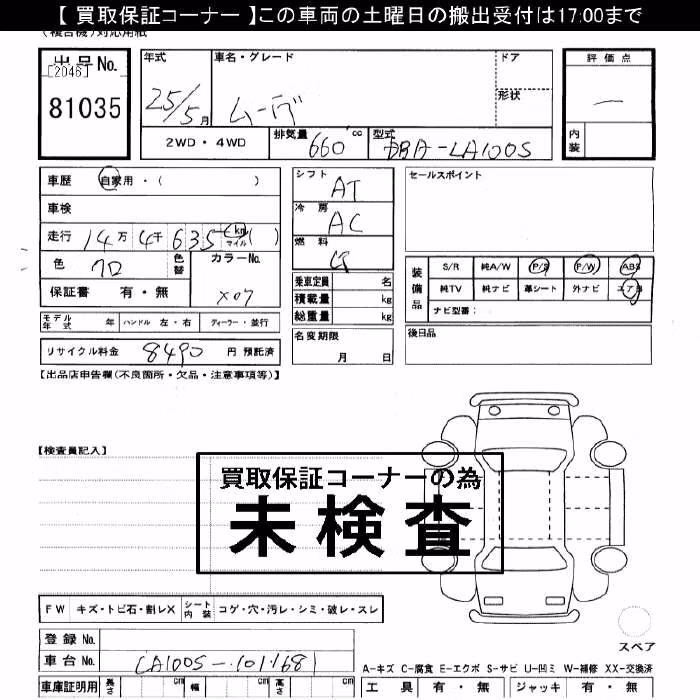 【 買取保証コーナー 】この車両の土曜日の搬出受付は17:00まで
(複合機)対応用紙
出品No.
[2046]
81035
年式
25/5月
車名・グレード
ムーヴ
ドア
形状
評価点
内装
2WD・4WD
排気量
660 cc
型式
DBA-LA100S
車歴 自家用・( )
車検
走行 14万 4千 635 km マイル ( )
色 クロ
色替
カラーNo.
X07
保証書 有・無
モデル年式 年 ハンドル 左・右 ディーラー・並行
リサイクル料金 8490 円 預託済
シフト
AT
冷房
AC
燃料
乗車定員 名
積載量 kg
総重量 kg
名変期限
月 日
セールスポイント
装備品
S/R 純A/W P/S P/W ABS
純TV 純ナビ 革シート 外ナビ エアB
ナビ型番:
後日品
【出品店申告欄(不良箇所・欠品・注意事項等)】
【検査員記入】
買取保証コーナーの為
未検査
FW キズ・トビ石・割レX シート内装 コゲ・穴・汚レ・シミ・破レ・スレ
登録 No.
車台 No. LA100S-101168
スペア
A-キズ C-腐食 E-エクボ S-サビ U-凹ミ W-補修 XX-交換済
車庫証明用 長さ cm 幅 cm 高さ cm
工具 有・無 ジャッキ 有・無